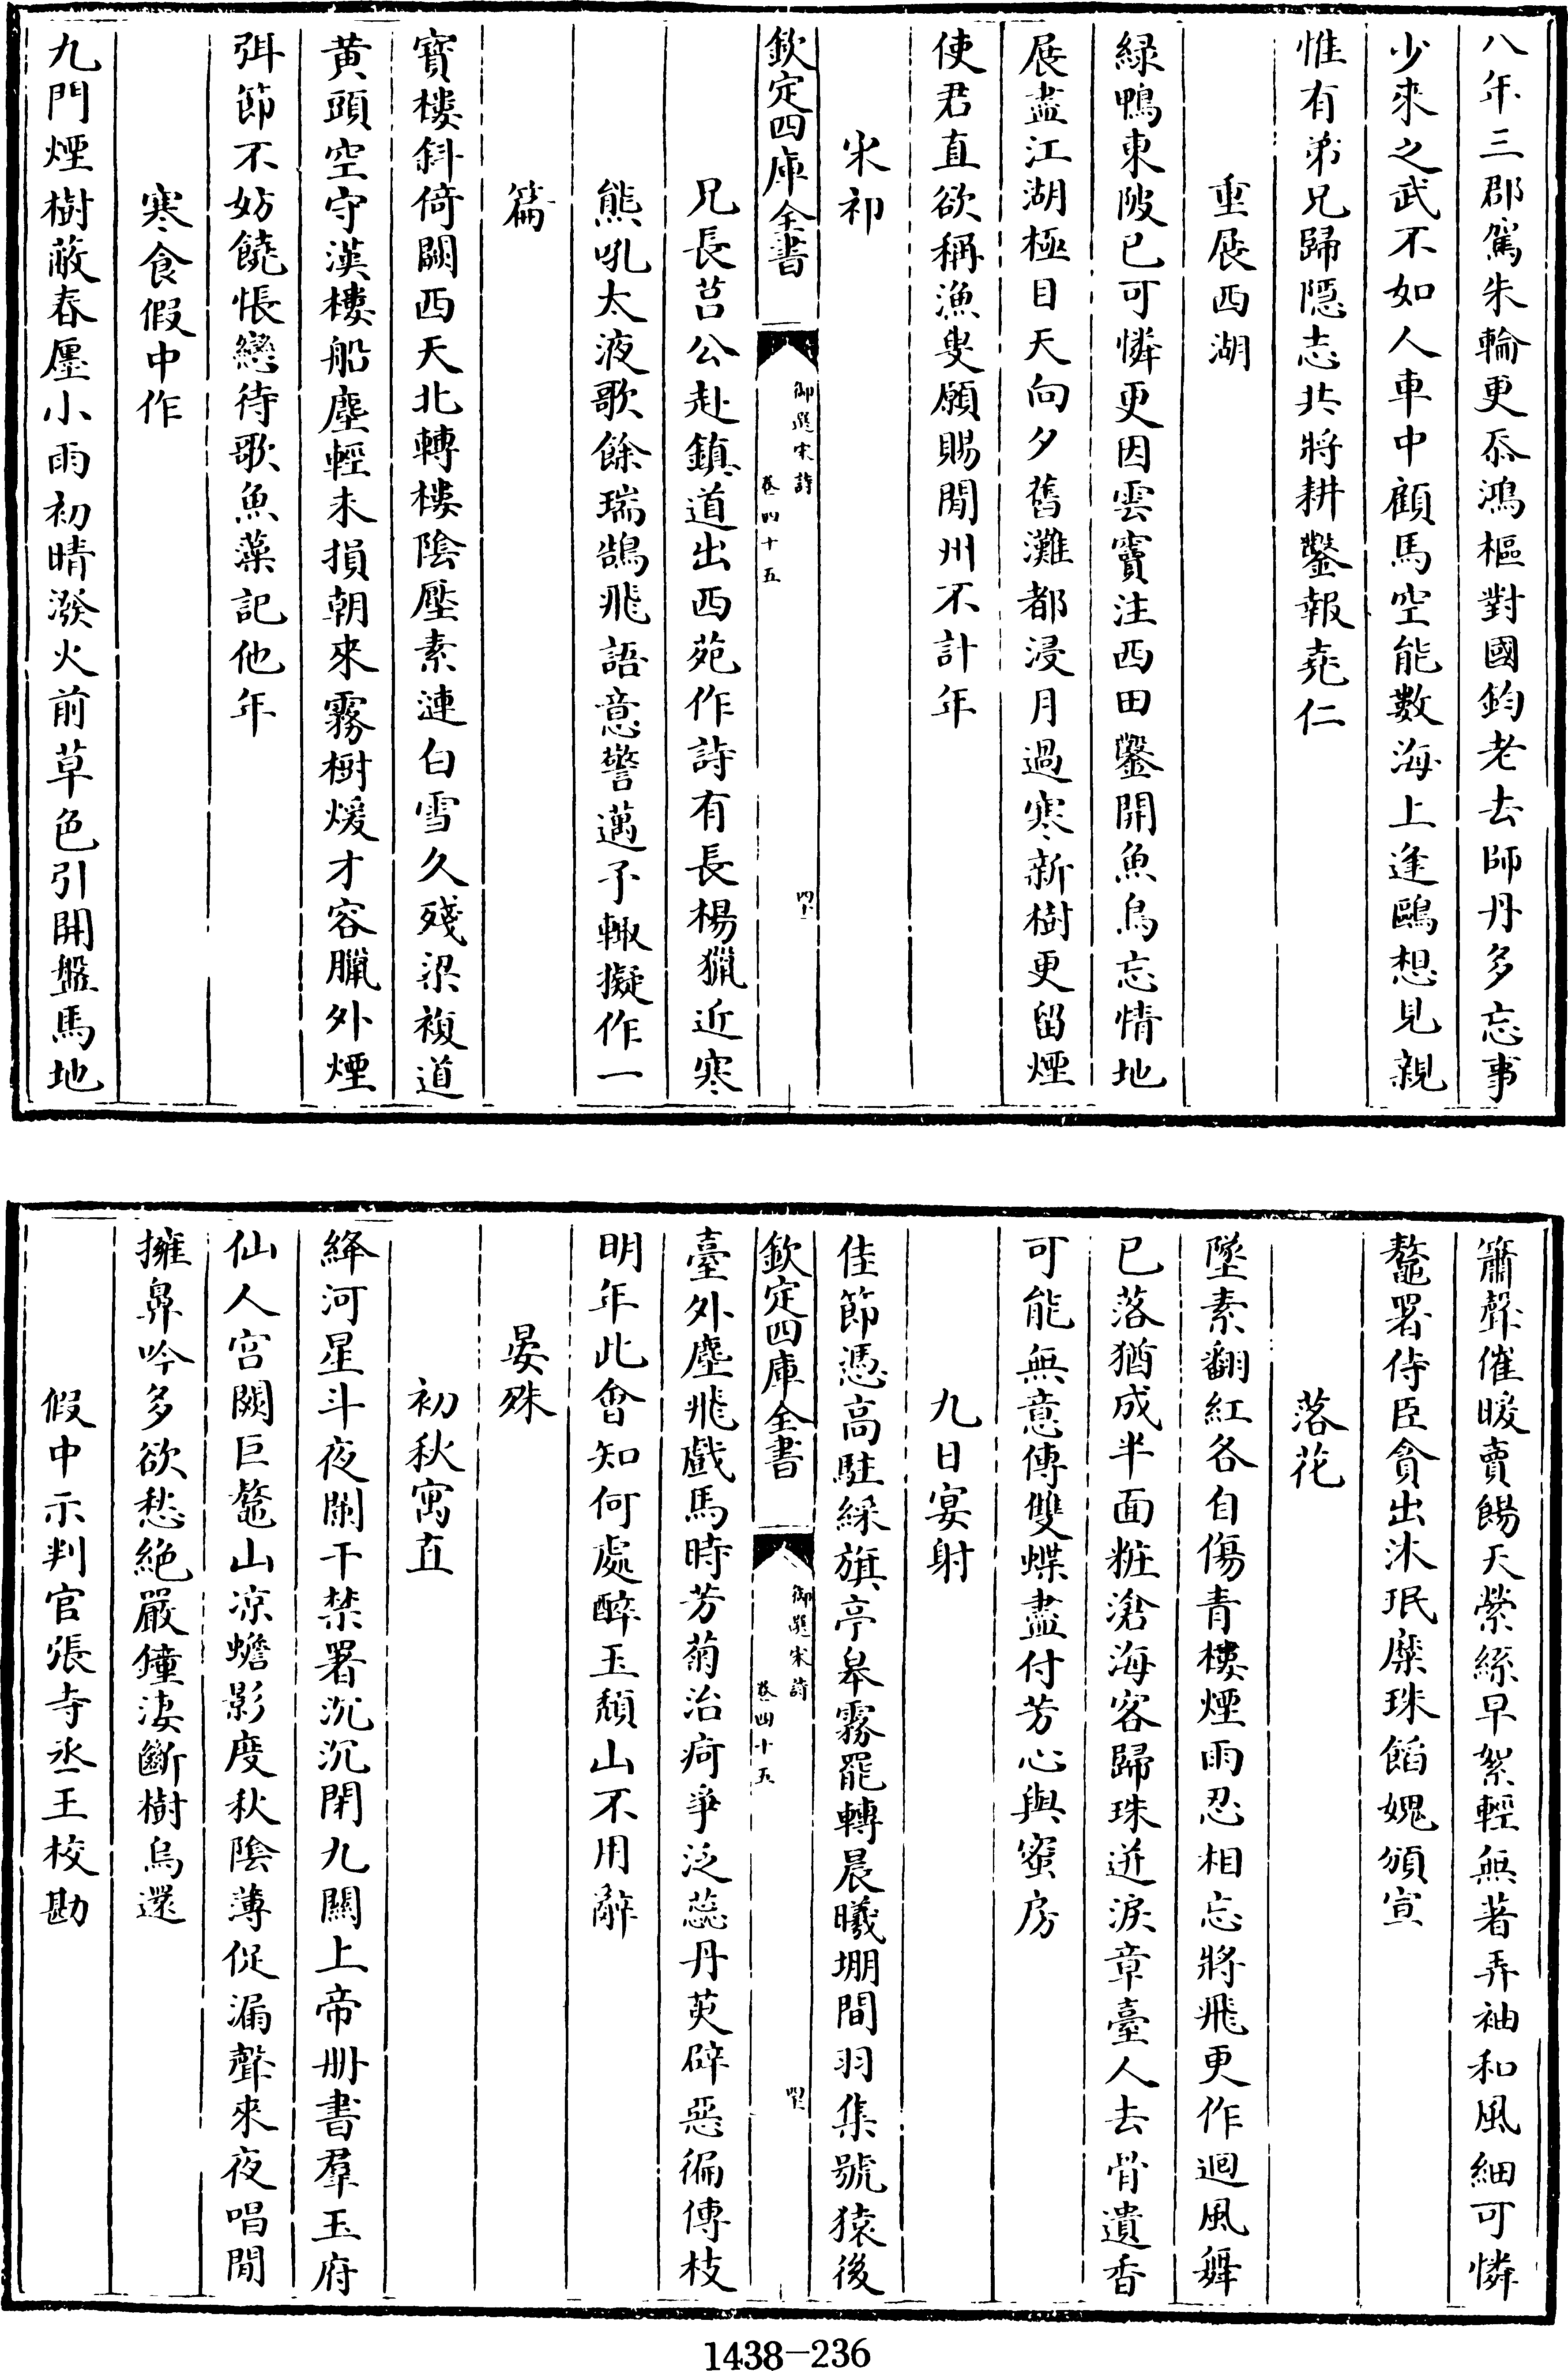 八年三郡駕朱輪更忝鴻樞對國鈞老去師丹多忘事
少來之武不如人車中顧馬空能數海上逢鷗想見親
惟有弟兄歸隱志共將耕鑿報堯仁
重展西湖
緑鴨東陂已可憐更因雲竇注西田鑿開魚鳥忘情地
展盡江湖極目天向夕舊灘都浸月過寒新樹更留煙
使君直欲稱漁叟願賜閒州不計年
宋祁
欽定四庫全書
御選宋詩
卷四十五
兄長莒公赴鎮道出西苑作詩有長楊獵近寒
熊吼太液歌餘瑞鵠飛語意警邁予輙擬作一
篇
寶樓斜倚闕西天北轉樓陰壓素漣白雪久殘梁複道
黄頭空守漢樓船塵輕未損朝來霧樹煖才容臘外煙
弭節不妨饒悵戀待歌魚藻記他年
寒食假中作
九門煙樹蔽春㕓小雨初晴潑火前草色引開盤馬地
簫聲催暖賣餳天縈絲早絮輕無著弄袖和風細可憐
鼇署侍臣貪出沐珉糜珠餡媿頒宣
落花
墜素翻紅各自傷青樓煙雨忍相忘將飛更作迴風舞
已落猶成半面粧滄海客歸珠迸淚章臺人去骨遺香
可能無意傳雙蝶盡付芳心與蜜房
九日宴射
佳節憑高駐綵旗亭臯霧罷轉晨曦堋間羽集號猿後
欽定四庫全書
御選宋詩
卷四十五
臺外塵飛戲馬時芳菊治痾爭泛蕊丹萸辟惡徧傳枝
明年此會知何處醉玉頽山不用辭
晏殊
初秋寓直
絳河星斗夜闌干禁署沉沉閉九關上帝册書羣玉府
仙人宫闕巨鼇山凉蟾影度秋陰薄促漏聲來夜唱閒
擁鼻吟多欲愁絶嚴鐘淒斷樹烏還
假中示判官張寺丞王校勘
1438-236